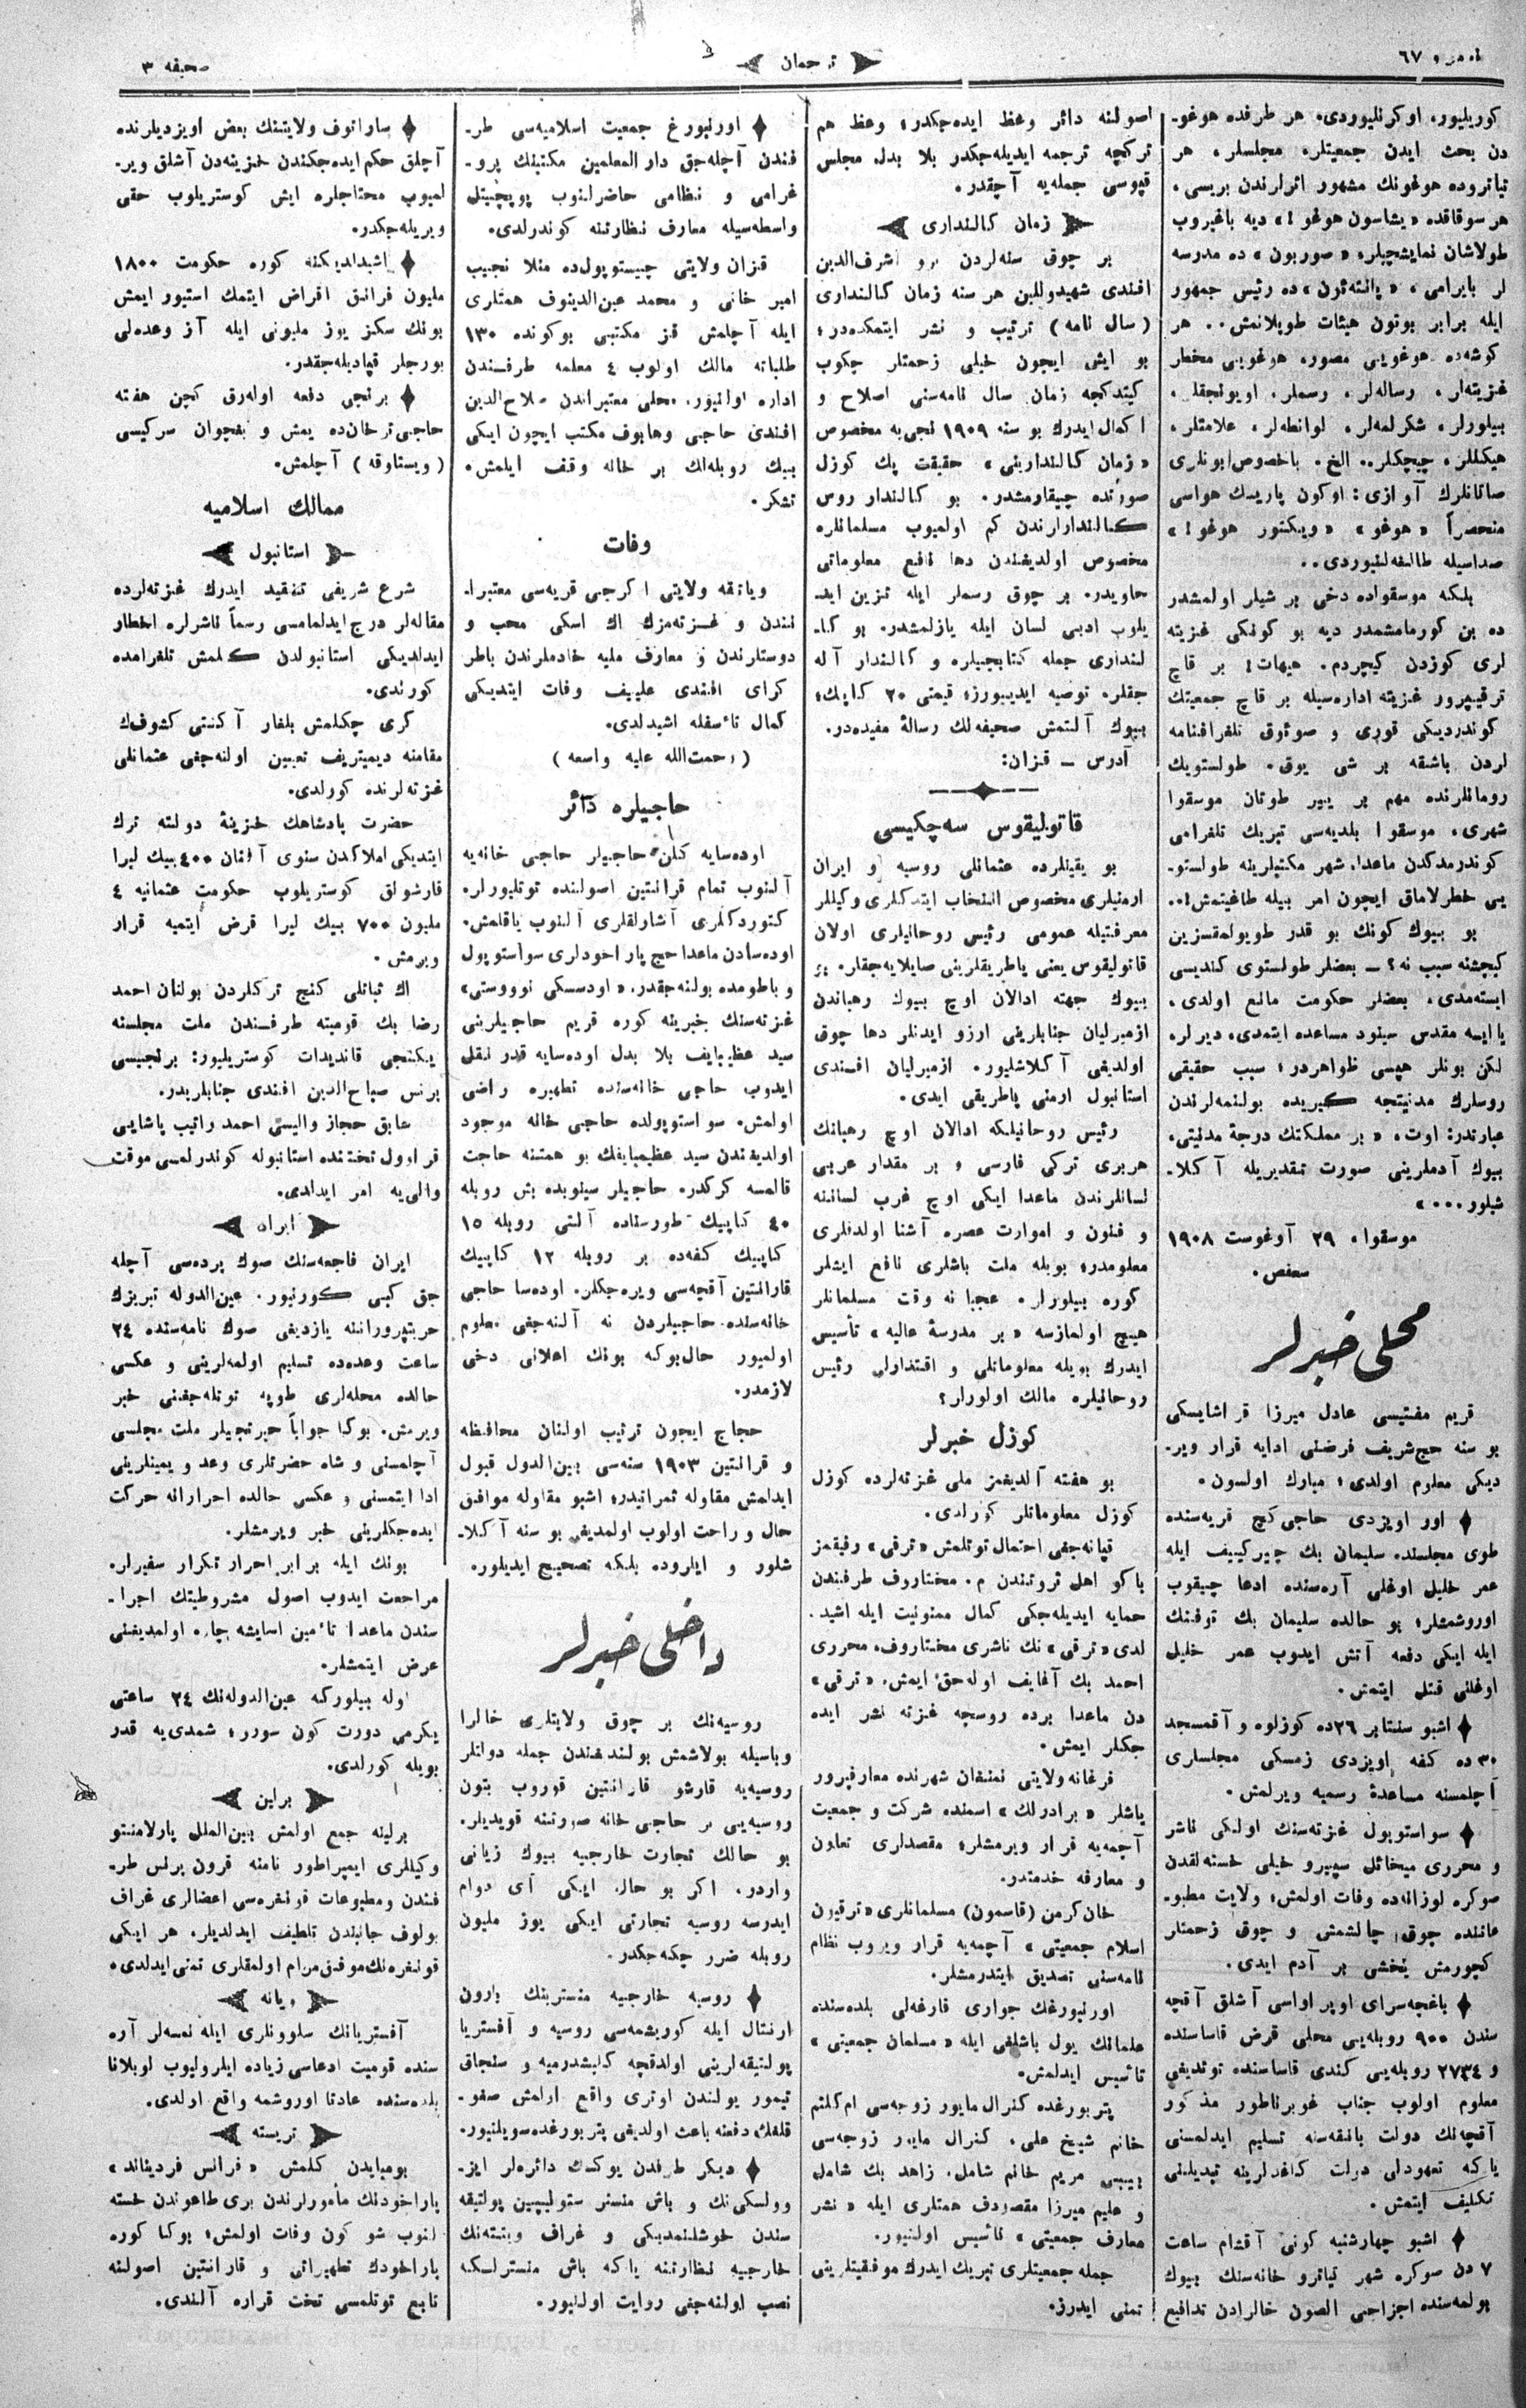 نومرو ٦٧
ترجمان
صحیفه ٣
كوریلیور، اوكرنلیوردی. هر طرفده هوغو-
دن بحث ایدن جمعیتلر، مجلسلر، هر
تیاتروده هوغونك مشهور اثرلرندن بریسی،
هر سوقاقده «یشاسون هوغو!» دیه باغیروب
طولاشان نمایشچیلر، «صوربون» ده مدرسه
لر بایرامی، «پانته‌ئون» ده رئیس جمهور
ایله برابر بوتون هیئات طوپلانمش.. هر
كوشه‌ده هوغویی مصور، هوغویی مخطر
غزیته‌لر، رساله‌لر، رسملر، اویونجقلر،
بیلورلر، شكرلمه‌لر، لوانطه‌لر، علامتلر،
هیكللر، چیچكلر.. الخ. باخصوص بونلری
صاتانلرك آوازی: اوكون پاریسك هواسی
منحصراً «هوغو» «ویكتور هوغو!»
صداسیله طالغه‌لنیوردی..
بلكه موسقواده دخی بر شیلر اولمشدر
ده بن كورمامشمدر دیه بو كونكی غزیته
لری كوزدن كیچردم. هیهات! بر قاچ
ترقیپرور غزیته اداره‌سیله بر قاچ جمعیتك
كوندردیكی قوری و صوئوق تلغرافنامه
لردن باشقه بر شی یوق. طولستویك
رومانلرنده مهم بر ییر طوتان موسقوا
شهری، موسقوا بلدیه‌سی تبریك تلغرامی
كوندرمدكدن ماعدا، شهر مكتبلرینه طولستو-
یی خطرلاماق ایچون امر بیله طاغیتمش!..
بو بیوك كونك بو قدر طویولمقسزین
كیچشنه سبب نه؟ — بعضلر طولستوی كندیسی
ایسته‌مدی، بعضلر حكومت مانع اولدی،
یا ایسه مقدس سینود مساعده ایتمدی، دیرلر.
لكن بونلر هپسی ظواهردر؛ سبب حقیقی
روسلرك مدنیتجه كیریده بولنمه‌لرندن
عبارتدر: اوت، «بر مملكتك درجهٔ مدنیتی،
بیوك آدملرینی صورت تقدیریله آكلا-
شیلور...»
موسقوا، ٢٩ آوغوست ١٩٠٨
سعفص.
محلی خبرلر
قریم مفتیسی عادل میرزا قراشایسكی
بو سنه حج شریف فرضنی ادایه قرار ویر-
دیكی معلوم اولدی؛ مبارك اولسون.
اور اویزدی حاجی كچ قریه‌سنده
طوی مجلسنده سلیمان بك چیركییف ایله
عمر خلیل اوغلی آره‌سنده ادعا چیقوب
اوروشمشلر؛ بو حالده سلیمان بك توفنك
ایله ایكی دفعه آتش ایدوب عمر خلیل
اوغلنی قتل ایتمش.
اشبو سنتابر ٢٦ده كوزلوه و آقمسجد
٣٠ ده كفه اویزدی زمسكی مجلسلری
آچلمسنه مساعدهٔ رسمیه ویرلمش.
سواستوپول غزته‌سنك اولكی ناشر
و محرری میخائل سپیرو خیلی خسته‌لقدن
صوكره لوزانه‌ده وفات اولمش؛ ولایت مطبو-
عاتنده چوق چالشمش و چوق زحمتلر
كچورمش یخشی بر آدم ایدی.
باغچه‌سرای اوپراواسی آشلق آقچه
سندن ٩٠٠ روبله‌یی محلی قرض قاساسنده
و ٢٧٣٤ روبله‌یی كندی قاساسنده توتدیغی
معلوم اولوب جناب غوبرناطور مذكور
آقچه‌لك دولت بانقه‌سنه تسلیم ایدلمسنی
یاكه تعهودلی دولت كاغدلرینه تبدیلنی
تكلیف ایتمش.
اشبو چهارشنبه كونی آقشام ساعت
٧ دن صوكره شهر تیاترو خانه‌سنك بیوك
بولمه‌سنده اجزاجی الصون خالرادن تدافیع
اصولنه دائر وعظ ایده‌جكدر؛ وعظ هم
تركچه ترجمه ایدیله‌جكدر بلا بدل مجلس
قپوسی جمله‌یه آچقدر.
زمان كالنداری
بر چوق سنه‌لردن برو اشرف‌الدین
افندی شهیدوللین هر سنه زمان كالنداری
(سال نامه) ترتیب و نشر ایتمكده‌در؛
بو ایش ایچون خیلی زحمتلر چكوب
كیتدكجه زمان سال نامه‌سنی اصلاح و
اكمال ایدرك بو سنه ١٩٠٩ نجی‌یه مخصوص
«زمان كالندارینی» حقیقت پك كوزل
صورتده چیقارمشدر. بو كالندار روس
كالندارلرندن كم اولمیوب مسلمانلره
مخصوص اولدیغندن دها نافع معلوماتی
حاویدر. بر چوق رسملر ایله تزین اید-
یلوب ادبی لسان ایله یازلمشدر. بو كا-
لنداری جمله كتابجیلره و كالندار آله
جقلره توصیه ایدییورز؛ قیمتی ٢٠ كاپك؛
بیوك آلتمش صحیفه‌لك رسالهٔ مفیده‌در.
آدرس — قزان:
قاتولیقوس سه‌چكیسی
بو یقینلرده عثمانلی روسیه و ایران
ارمنیلری مخصوص انتخاب ایتدكلری وكیللر
معرفتیله عمومی رئیس روحانیلری اولان
قاتولیقوس یعنی پاطریقلرینی صایلایه‌جقلر. بر
بیوك جهته ادالان اوچ بیوك رهباندن
ازمیرلیان جنابلرینی ارزو ایدنلر دها چوق
اولدیغی آكلاشلیور. ازمیرلیان افندی
استانبول ارمنی پاطریقی ایدی.
رئیس روحانیلكه ادالان اوچ رهبانك
هربری تركی فارسی و بر مقدار عربی
لسانلرندن ماعدا ایكی اوچ غرب لساننه
و فنون و اموارت عصره آشنا اولدقلری
معلومدر؛ بویله ملت باشلری نافع ایشلر
كوره بیلورلر. عجبا نه وقت مسلمانلر
هیچ اولمازسه «بر مدرسهٔ عالیه» تأسیس
ایدرك بویله معلوماتلی و اقتدارلی رئیس
روحانیلره مالك اولورلر؟
كوزل خبرلر
بو هفته آلدیغمز ملی غزته‌لرده كوزل
كوزل معلوماتلر كورلدی.
قپانه‌جغی احتمال توتلمش «ترقی» رفیقمز
باكو اهل ثروتندن م. مختاروف طرفندن
حمایه ایدیله‌جكی كمال ممنونیت ایله اشید.
لدی «ترقی» نك ناشری مختاروف، محرری
احمد بك آغایف اوله‌جق ایمش. «ترقی»
دن ماعدا برده روسچه غزته نشر ایده
جكلر ایمش.
فرغانه ولایتی نمنغان شهرنده معارفپرور
یاشلر «برادرلك» اسمنده شركت و جمعیت
آچمه‌یه قرار ویرمشلر؛ مقصدلری تعاون
و معارفه خدمتدر.
خان كرمن (قاسموف) مسلمانلری «ترقیون
اسلام جمعیتی» آچمه‌یه قرار ویروب نظام
نامه‌سنی تصدیق ایتدرمشلر.
اورنبورغك جواری قارغه‌لی بلده‌سنده
علمانك یول باشلغی ایله «مسلمان جمعیتی»
تأسیس ایدلمش.
پتربورغده كنرال مایور زوجه‌سی ام‌كلثم
خانم شیخ علی، كنرال مایور زوجه‌سی
بیبی مریم خانم شامل، زاهد بك شامل
و علیم میرزا مقصودف همتلری ایله «نشر
معارف جمعیتی» تأسیس اولنیور.
جمله جمعیتلری تبریك ایدرك موفقیتلرینی
تمنی ایدرز.
اورنبورغ جمعیت اسلامیه‌سی طر-
فندن آچله‌جق دار المعلمین مكتبنك پرو-
غرامی و نظامی حاضرلنوب پوپچیتل
واسطه‌سیله معارف نظارتنه كوندرلدی.
قزان ولایتی چیستوپول‌ده منلا نجیب
امیر خانی و محمد عین‌الدینوف همتلری
ایله آچلمش قز مكتبی بوكونده ١٣٠
طلباته مالك اولوب ٤ معلمه طرفندن
اداره اولنیور. محلی معتبراندن صلاح‌الدین
افندی حاجی وهابوف مكتب ایچون ایكی
بیك روبله‌لك بر خانه وقف ایلمش.
تشكر.
وفات
ویاتقه ولایتی اكرجی قریه‌سی معتبرا-
تندن و غزته‌مزك اك اسكی محب و
دوستلرندن و معارف ملیه خادملرندن باطر
كرای افندی علییف وفات ایتدیكی
كمال تأسفله اشیدلدی.
(رحمت‌الله علیه واسعه)
حاجیلره دائر
اوده‌سایه كلن حاجیلر حاجی خانه‌یه
آلنوب تمام قرانتین اصولنده توتلیورلر.
كتوردكلری آشاولقلری آلنوب یاقلمش.
اوده‌سادن ماعدا حج پاراخودلری سواستوپول
و باطومده بولنه‌جقدر. «اودسسكی نووستی»
غزته‌سنك خبرینه كوره قریم حاجیلرینی
سید عظیبایف بلا بدل اوده‌سایه قدر نقل
ایدوب حاجی خانه‌سنده تطهیره راضی
اولمش. سواستوپولده حاجی خانه موجود
اولدیغندن سید عظیمبایفك بو همتنه حاجت
قالمسه كركدر. حاجیلر سینوبده بش روبله
٤٠ كاپیك طورستاده آلتی روبله ١٥
كاپیك كفه‌ده بر روبله ١٢ كاپیك
قارانتین آقچه‌سی ویره‌جكلر. اوده‌سا حاجی
خانه‌سنده حاجیلردن نه آلنه‌جغی معلوم
اولمیور حال‌بوكه بونك اعلانی دخی
لازمدر.
حجاج ایچون ترتیب اولنان محافظه
و قرانتین ١٩٠٣ سنه‌سی بین‌الدول قبول
ایدلمش مقاوله ثمراتیدر؛ اشبو مقاوله موافق
حال و راحت اولوب اولمدیغی بو سنه آكلا-
شلور و ایلروده بلكه تصحیح ایدیلور.
داخلی خبرلر
روسیه‌نك بر چوق ولایتلری خالرا
وباسیله بولاشمش بولندیغندن جمله دولتلر
روسیه‌یه قارشو قارانتین قوروب بتون
روسیه‌یی بر حاجی خانه صورتنه قویدیلر.
بو حالك تجارت خارجیه بیوك زیانی
واردر. اكر بو حال ایكی آی دوام
ایدرسه روسیه تجارتی ایكی یوز ملیون
روبله ضرر چكه‌جكدر.
روسیه خارجیه منسترینك بارون
ارنتال ایله كوریشمه‌سی روسیه و آفستریا
پولتیقه‌لرینی اولدقچه كلیشدرمیه و سنجاق
تیمور یولندن اوتری واقع اولمش صغو-
قلغك دفعنه باعث اولدیغی پتربورغده سویلنیور.
دیكر طرفدن یوكسك دائره‌لر ایز-
وولسكی‌نك و باش منستر ستولیپین پولتیقه
سندن خوشلنمدیكی و غراف ویتته‌نك
خارجیه نظارتنه یاكه باش منسترلكه
نصب اولنه‌جغی روایت اولنیور.
ساراتوف ولایتینك بعض اویزدیلرنده
آچلق حكم ایده‌جكندن خزینه‌دن آشلق ویر-
لمیوب محتاجلره ایش كوستریلوب حقی
ویریله‌جكدر.
اشیدلدیكنه كوره حكومت ١٨٠٠
ملیون فرانق اقراض ایتمك استیور ایمش
بونك سكز یوز ملیونی ایله آز وعده‌لی
بورجلر قپادیله‌جقدر.
برنجی دفعه اوله‌رق كچن هفته
حاجی‌ترخان‌ده یمش و بغچوان سركیسی
(ویستاوقه) آچلمش.
ممالك اسلامیه
استانبول
شرع شریفی تنقید ایدرك غزته‌لرده
مقاله‌لر درج ایدلمامسی رسماً ناشرلره اخطار
ایدلدیكی استانبولدن كلمش تلغرامده
كورندی.
كری چكلمش بلغار آكنتی كشوف‌ك
مقامنه دیمیتریف تعیین اولنه‌جغی عثمانلی
غزته‌لرنده كورلدی.
حضرت پادشاهك خزینهٔ دولته ترك
ایتدیكی املاكدن سنوی آلنان ٤٠٠ بیك لیرا
قارشولق كوستریلوب حكومت عثمانیه ٤
ملیون ٧٠٠ بیك لیرا قرض ایتمیه قرار
ویرمش.
اك ثباتلی كنج تركلردن بولنان احمد
رضا بك قومیته طرفندن ملت مجلسنه
یكنجی قاندیدات كوستریلیور: برنجیسی
پرنس صباح‌الدین افندی جنابلریدر.
سابق حجاز والیسی احمد راتب پاشایی
قراوول تختنده استانبوله كوندرلمسی موقت
والی‌یه امر ایدلدی.
ایران
ایران فاجعه‌سنك صوك پرده‌سی آچله
جق كبی كورنیور. عین‌الدوله تبریزك
حریتپرورانه یازدیغی صوك نامه‌سنده ٢٤
ساعت وعده‌ده تسلیم اولمه‌لرینی و عكسی
حالده محله‌لری طوپه توتله‌جغنی خبر
ویرمش. بوكا جواباً حریتجیلر ملت مجلسی
آچلمسنی و شاه حضرتلری وعد و یمینلرینی
ادا ایتمسنی و عكسی حالده احرارانه حركت
ایده‌جكلرینی خبر ویرمشلر.
بونك ایله برابر احرار تكرار سفیرلره
مراجعت ایدوب اصول مشروطیتك اجرا-
سندن ماعدا تأمین اسایشه چاره اولمدیغنی
عرض ایتمشلر.
اوله بیلوركه عین‌الدوله‌نك ٢٤ ساعتی
یكرمی دورت كون سورر؛ شمدی‌یه قدر
بویله كورلدی.
برلین
برلینه جمع اولمش بین‌الملل پارلامنتو
وكیللری ایمپراطور نامنه قرون پرنس طر-
فندن و مطبوعات قونفره‌سی اعضالری غراف
بولوف جانبندن تلطیف ایدلدیلر. هر ایكی
قونفره‌نك موفق مرام اولمقلری تمنی ایدلدی.
ویانه
آفستریانك سلوونلری ایله نمسه‌لر آره
سنده قومیت ادعاسی زیاده ایلرولیوب لوبلانا
بلده‌سنده عادتا اوروشمه واقع اولدی.
تریسته
بومبایدن كلمش «فرانس فردیناند»
پاراخودنك مأمورلرندن بری طاعوندن خسته
لنوب شو كون وفات اولمش؛ بوكا كوره
پاراخودك تطهیراتی و قارانتین اصولنه
تابع توتلمسی تخت قراره آلندی.